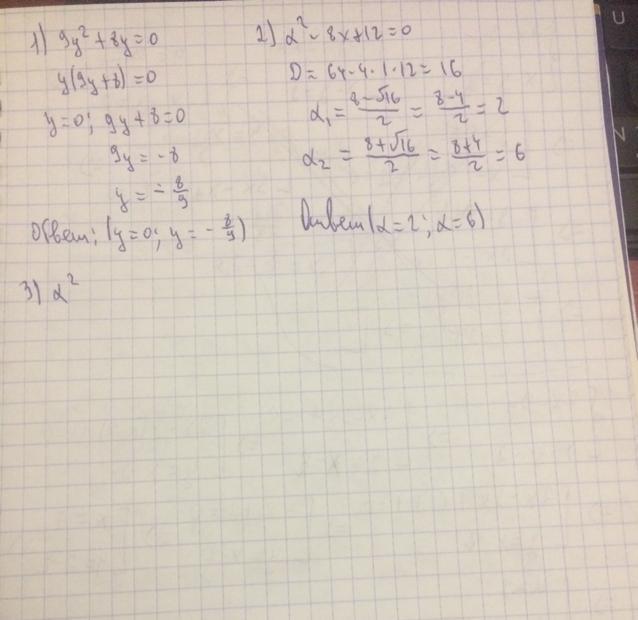 1) 9y² + 8y = 0
y(9y + 8) = 0
y = 0; 9y + 8 = 0
9y = -8
y = -8/9
Ответ: (y = 0; y = -8/9)
2) x² - 8x + 12 = 0
D = 64 - 4 · 1 · 12 = 16
x₁ = (8 - √16)/2 = (8 - 4)/2 = 2
x₂ = (8 + √16)/2 = (8 + 4)/2 = 6
Ответ (x = 2; x = 6)
3) x²
U